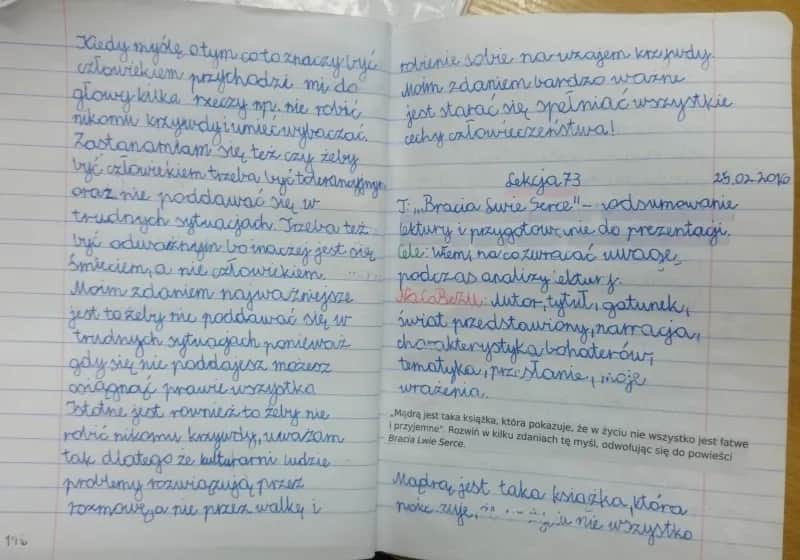 Kiedy myślę o tym co to znaczy być
człowiekiem przychodzi mi do
głowy kilka rzeczy np. nie robić
nikomu krzywdy i umieć wybaczać.
Zastanawiam się też czy żeby
być człowiekiem trzeba być tolerancyjnym
oraz nie poddawać się w
trudnych sytuacjach. Trzeba też
być odważnym bo inaczej jest się
śmieciem, a nie człowiekiem.
Moim zdaniem najważniejsze
jest to żeby nie poddawać się w
trudnych sytuacjach ponieważ
gdy się nie poddajesz możesz
osiągnąć prawie wszystko
Istotne jest również to żeby nie
robić nikomu krzywdy, uważam
tak dlatego że kulturarni ludzie
problemy rozwiązują przez
rozmowę, a nie przez walkę i
146
robienie sobie na wzajem krzywdy.
Moim zdaniem bardzo ważne
jest starać się spełniać wszystkie
cechy człowieczeństwa!
Lekcja 73
T: „Bracia Lwie Serce" – podsumowanie
lektury i przygotowanie do prezentacji.
Cele: Wiem, na co zwracać uwagę
podczas analizy lektury.
NaCoBeZU: Autor, tytuł, gatunek,
świat przedstawiony, narracja,
charakterystyka bohaterów,
tematyka, przesłanie, moje
wrażenia.
„Mądrą jest taka książka, która pokazuje, że w życiu nie wszystko jest łatwe
i przyjemne". Rozwiń w kilku zdaniach tę myśl, odwołując się do powieści
Bracia Lwie Serce.
Mądrą jest taka książka, która
nie wszystko